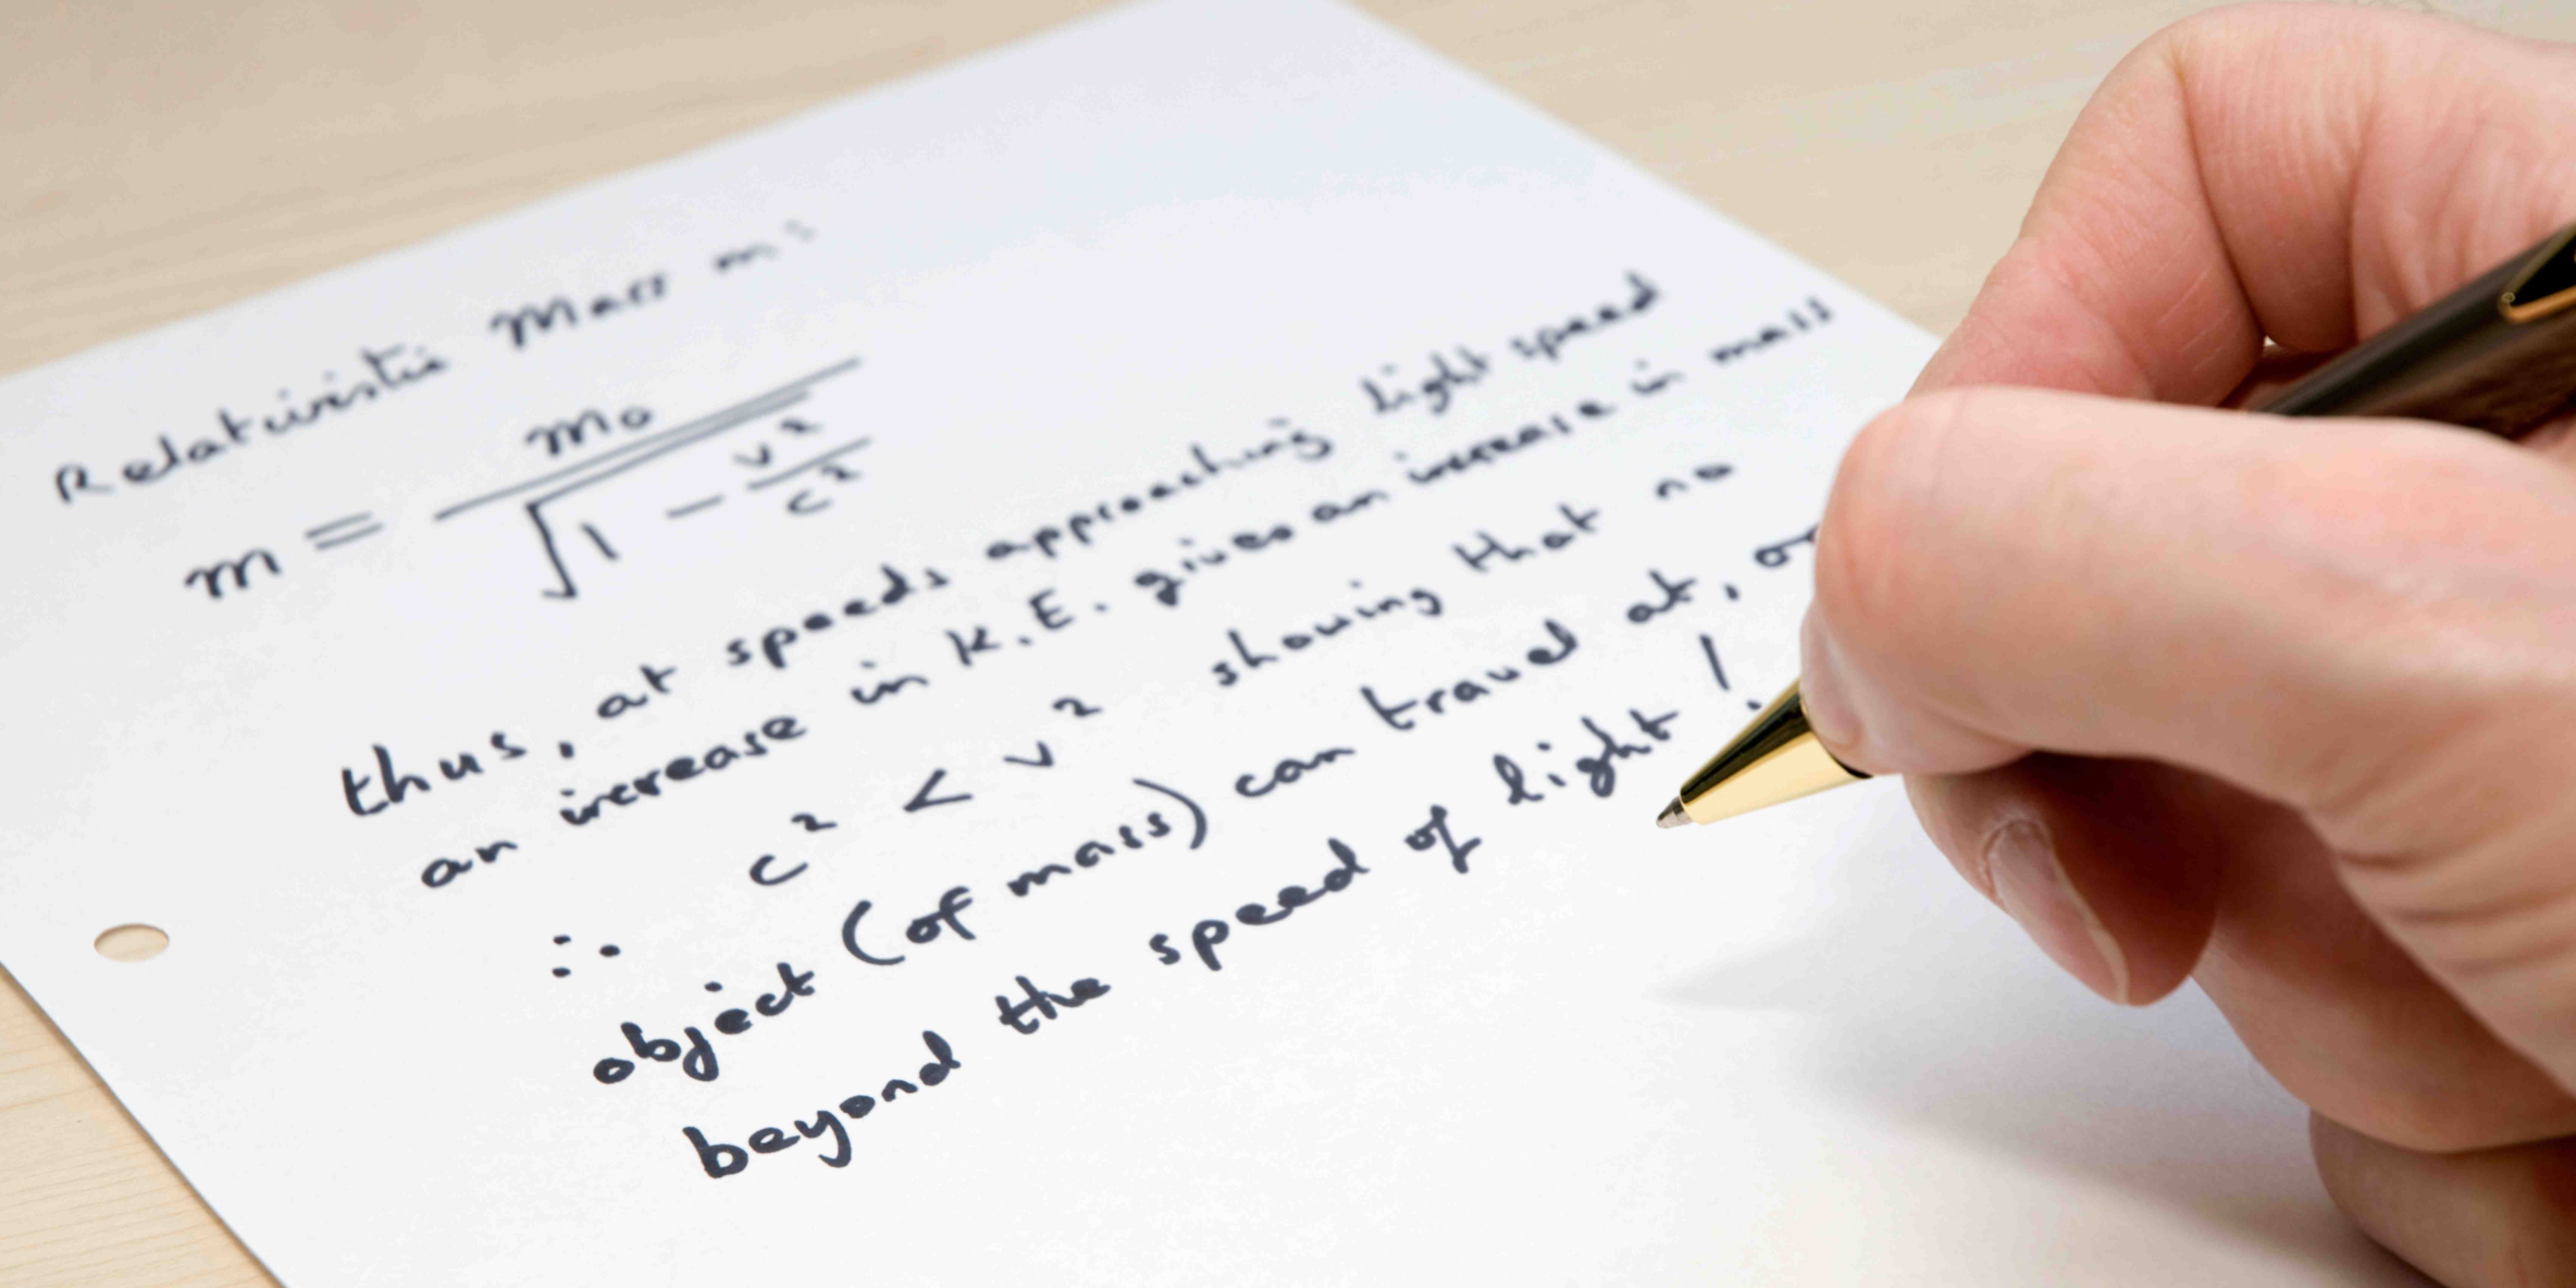 Relativistic Mass m:
m = m₀ / √(1 - v²/c²)
thus, at speeds approaching light speed
an increase in K.E. gives an increase in mass
∴ c² < v² showing that no
object (of mass) can travel at, or
beyond the speed of light!